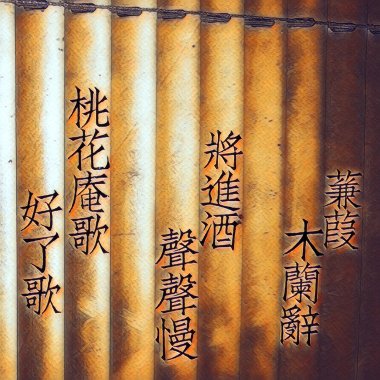 蒹葭
木蘭辭
將進酒
聲聲慢
桃花庵歌
好了歌